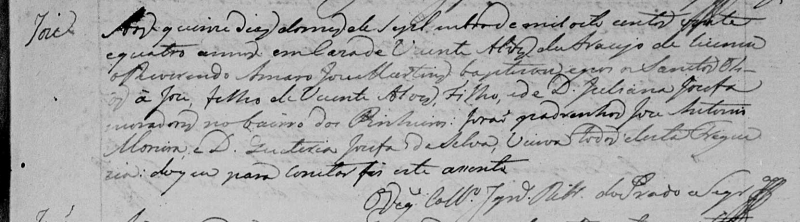 José
Aos quinze dias do mez de Septembro de mil oito centos vinte
e quatro annos em Caza de Vicente Alvz de Araujo de licença
o Reverendo Amaro José Martins baptizou e pos os Santos Ol
à José, filho de Vicente Alvz Filho, e de D. Juliana Josefa
moradores no bairro dos Pinheiros: forão padrinhos José Antonio
Moreira, e D. Quiteria Josefa da Selva, Viuva todos desta Fregue
zia: do que para constar fis este assento
do Prado